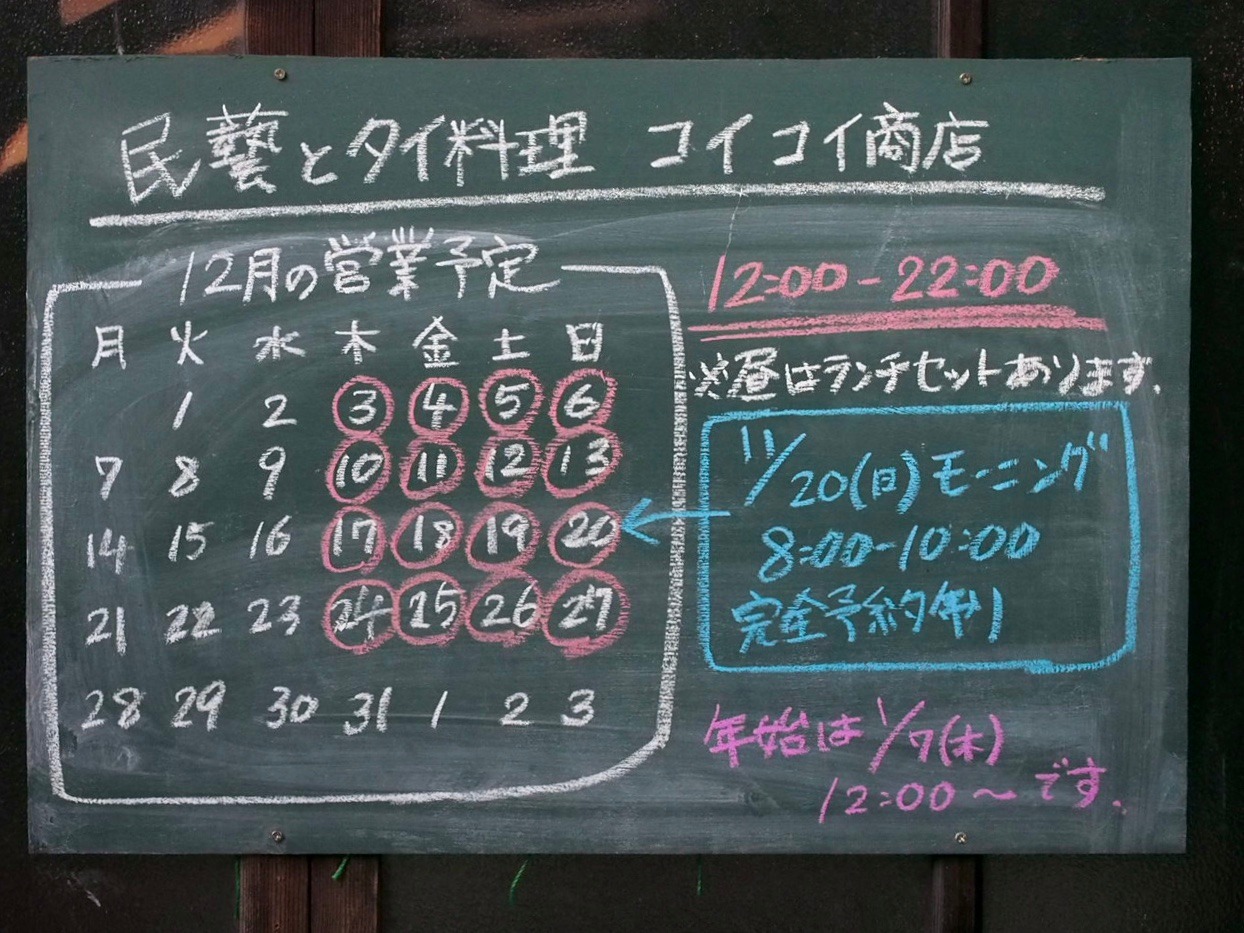 民藝とタイ料理 コイコイ商店
12月の営業予定
月 火 水 木 金 土 日
1 2 3 4 5 6
7 8 9 10 11 12 13
14 15 16 17 18 19 20
21 22 23 24 25 26 27
28 29 30 31 1 2 3
12:00-22:00
※昼はランチセットあります.
11/20(日)モーニング
8:00-10:00
完全予約制
年始は1/7(木)
12:00〜です.